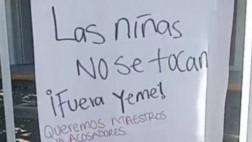 Las niñas
NO se tocan
¡Fuera Yeme!
Queremos MAESTROS
NO ACOSADORES